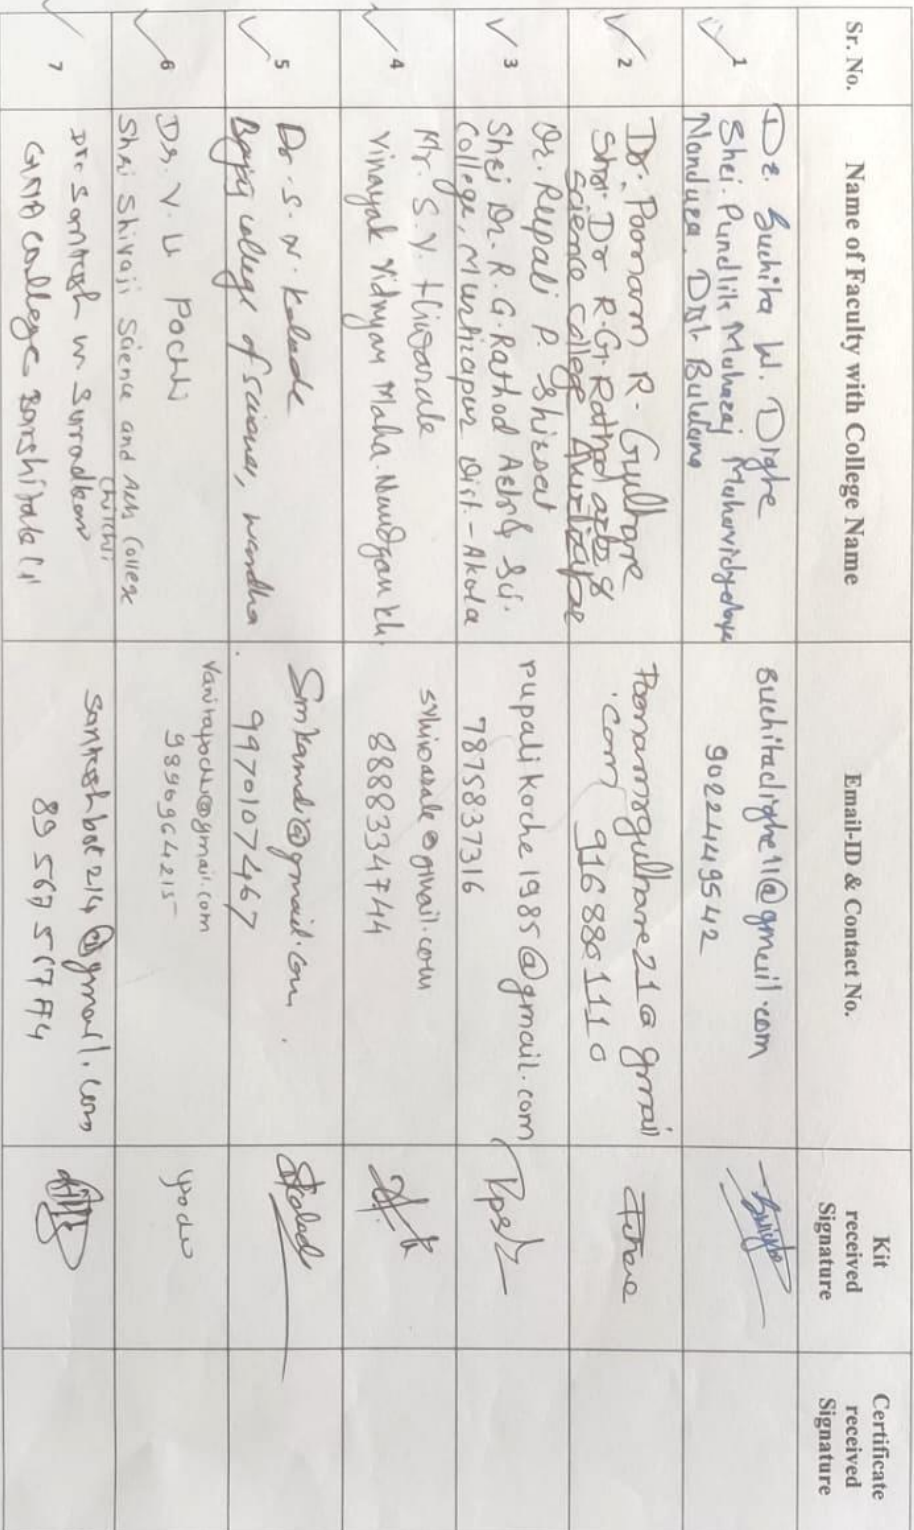 Sr. No.
Name of Faculty with College Name
Email-ID & Contact No.
Kit
received
Signature
Certificate
received
Signature
1
Dr. Suchita W. Dighe
Shri. Pundlik Maharaj Mahavidyalaya
Nandura. Dist. Buldana
suchitadighe11@gmail.com
9022449542
2
Dr. Poonam R. Gulhane
Shri. Dr R.G. Rathod arts &
science college Murtizapur
Poonamrgulhane21@gmail
.com 9168861110
3
Dr. Rupali P. Shirsat
Shri Dr. R. G. Rathod Arts & Sci.
College, Murtizapur Dist.-Akola
rupalikorche1985@gmail.com
7875837316
4
Mr. S. V. Hiwarale
Vinayak Vidnyan Maha. Nandgaon kh.
svhiwarale@gmail.com
8888334744
5
Dr. S. N. Kalade
Bajaj college of science, wardha
9970107467
6
Dr. V. U Pochh
Shri Shivaji Science and Arts College
Chikhli
vanirapochh@gmail.com
9890964215
7
Dr. Santosh
College Barshitakli
santoshbot214@gmail.com